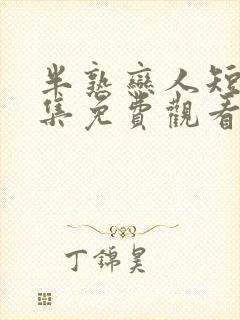 半熟戀人短
集免費觀看
丁錦昊